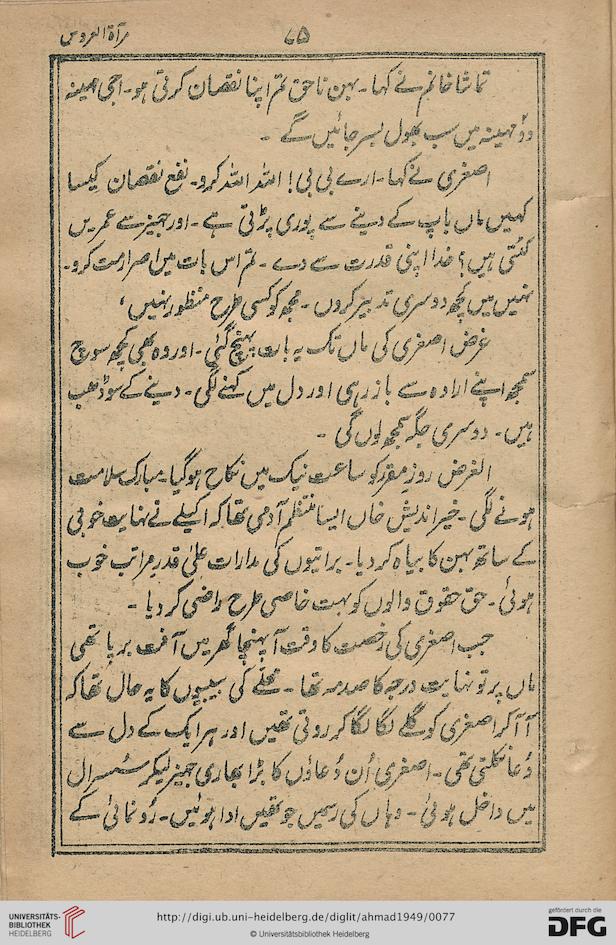 مرآۃ العروس
۷۵
تماشا خانم نے کہا۔ بہن ناحق تم اپنا نقصان کرتی ہو۔ اجی مہینہ
دو مہینہ میں سب بھول بسر جائیں گے ۔
اصغری نے کہا۔ ارے بی بی! اللہ اللہ کرو۔ نفع نقصان کیسا
کہیں ماں باپ کے دینے سے پوری پڑتی ہے۔ اور جہیز سے عمریں
کٹتی ہیں؟ خدا اپنی قدرت سے دے ۔ تم اس بات میں اصرار مت کرو۔
نہیں میں کچھ دوسری تدبیر کروں ۔ مجھ کو کسی طرح منظور نہیں،
غرض اصغری کی ماں تک یہ بات پہنچ گئی۔ اور وہ بھی کچھ سوچ
سمجھ اپنے ارادہ سے باز رہی اور دل میں کہنے لگی ۔ دینے کے سو ڈھب
ہیں۔ دوسری جگہ سمجھ لوں گی ۔
الغرض روز مقرر کو ساعت نیک میں نکاح ہو گیا۔ مبارک سلامت
ہونے لگی ۔ خیر اندیش خاں ایسا منتظم آدمی تھا کہ اکیلے نے نہایت خوبی
کے ساتھ بہن کا بیاہ کر دیا۔ براتیوں کی مدارات علیٰ قدر مراتب خوب
ہوئی۔ حق حقوق والوں کو بہت خاصی طرح راضی کر دیا ۔
جب اصغری کی رخصت کا وقت آ پہنچا گھر میں آفت برپا تھی
ماں پر تو نہایت درجہ کا صدمہ تھا ۔ محلے کی بیبیوں کا یہ حال تھا کہ
آ آ کر اصغری کو گلے لگا لگا کر روتی تھیں اور ہر ایک کے دل سے
دُعا نکلتی تھی۔ اصغری اُن دُعاؤں کا بڑا بھاری جہیز لیکر سُسرال
میں داخل ہوئی۔ وہاں کی رسمیں جو تھیں ادا ہوئیں۔ رُو نمائی کے
UNIVERSITÄTS-
BIBLIOTHEK
HEIDELBERG
http://digi.ub.uni-heidelberg.de/diglit/ahmad1949/0077
© Universitätsbibliothek Heidelberg
gefördert durch die
DFG